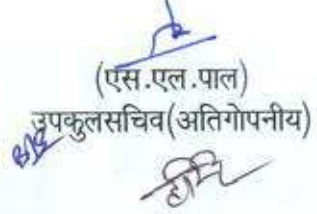 (एस.एल.पाल)
उपकुलसचिव(अतिगोपनीय)